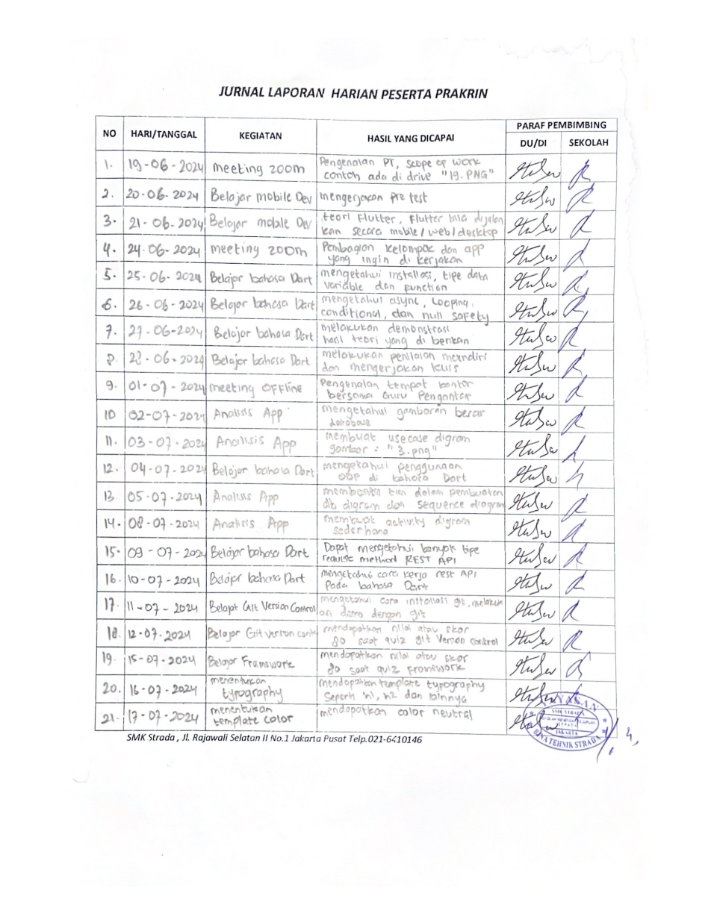 JURNAL LAPORAN HARIAN PESERTA PRAKRIN
NO HARI/TANGGAL KEGIATAN HASIL YANG DICAPAI PARAF PEMBIMBING
DU/DI SEKOLAH
1. 19-06-2024 meeting zoom Pengenalan PT, scope of work
contoh ada di drive "19.PNG"
2. 20-06-2024 Belajar mobile Dev mengerjakan pre test
3. 21-06-2024 Belajar mobile Dev teori Flutter, Flutter bisa dijalan
kan secara mobile/web/desktop
4. 24-06-2024 meeting zoom Pembagian kelompok dan app
yang ingin di kerjakan
5. 25-06-2024 Belajar bahasa Dart mengetahui installasi, tipe data
variable dan function
6. 26-06-2024 Belajar bahasa Dart mengetahui async, looping,
conditional, dan null safety
7. 27-06-2024 Belajar bahasa Dart melakukan demonstrasi
hasil teori yang di berikan
8. 28-06-2024 Belajar bahasa Dart melakukan penilaian mandiri
dan mengerjakan kuis
9. 01-07-2024 meeting OFFline Pengenalan tempat kantor
bersama Guru Pengantar
10 02-07-2024 Analisis App mengetahui gambaran besar
database
11. 03-07-2024 Analisis App membuat usecase digram
gambar : "3.png"
12. 04-07-2024 Belajar bahasa Dart mengetahui penggunaan
OOP di bahasa Dart
13 05-07-2024 Analisis App membantu tim dalam pembuatan
db digram dan sequence diagram
14. 08-07-2024 Analisis App membuat activity digram
sederhana
15. 09-07-2024 Belajar bahasa Dart Dapat mengetahui banyak tipe
method REST API
16. 10-07-2024 Belajar bahasa Dart mengetahui cara kerja rest API
Pada bahasa Dart
17. 11-07-2024 Belajar Git Version Control mengetahui cara initialiasi git, melakuk
an demo dengan git
18. 12-07-2024 Belajar Git version control mendapatkan nilai atau skor
80 saat quiz git Version control
19. 15-07-2024 Belajar Framework mendapatkan nilai atau skor
80 saat quiz framework
20. 16-07-2024 menentukan
typography mendapatkan template typography
Seperti h1, h2 dan lainnya
21. 17-07-2024 menentukan
template color mendapatkan color neutral
SMK Strada , Jl. Rajawali Selatan II No.1 Jakarta Pusat Telp.021-6410146
JAKARTA
TEHNIK STRADA